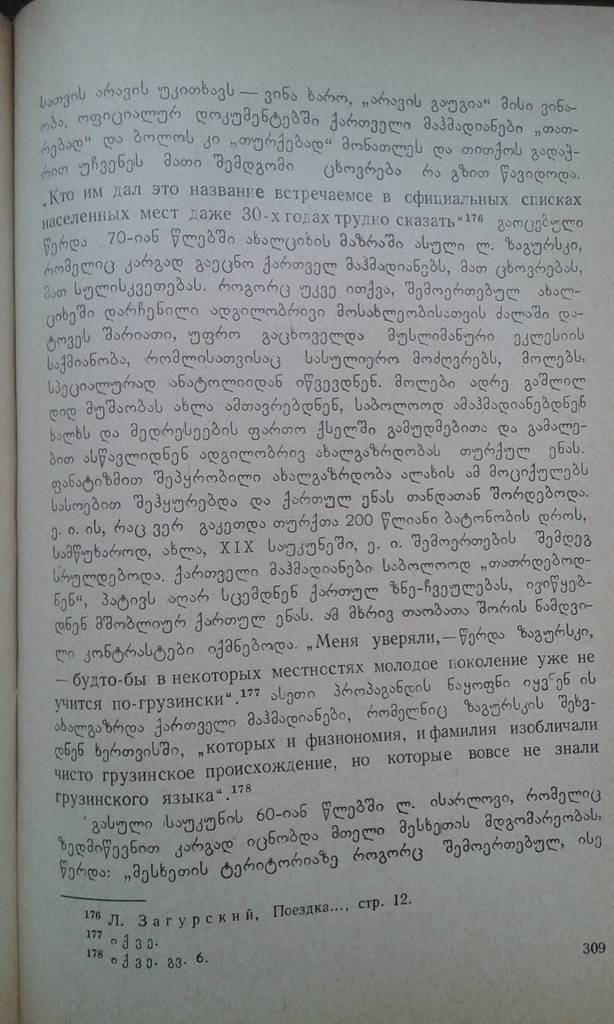 სათვის არავის უკითხავს — ვინა ხარო, „არავის გაუგია“ მისი ვინა-
ობა. ოფიციალურ დოკუმენტებში ქართველი მაჰმადიანები „თათ-
რებად“ და ბოლოს კი „თურქებად“ მონათლეს და თითქოს გადაჭ-
რით უჩვენეს მათი შემდგომი ცხოვრება რა გზით წავიდოდა.
„Кто им дал это название встречаемсе в официальных списках
населенных мест даже 30-х годах трудно сказать“176 გაოცებული
წერდა 70-იან წლებში ახალციხის მაზრაში ასული ლ. ზაგურსკი,
რომელიც კარგად გაეცნო ქართველ მაჰმადიანებს, მათ ცხოვრებას,
მათ სულისკვეთებას. როგორც უკვე ითქვა, შემოერთებულ ახალ-
ციხეში დარჩენილი ადგილობრივი მოსახლეობისათვის ძალაში და-
ტოვეს შარიათი, უფრო გაცხოველდა მუსლიმანური ეკლესიის
საქმიანობა, რომლისათვისაც სასულიერო მოძღვრებს, მოლებს,
სპეციალურად ანატოლიიდან იწვევდნენ. მოლები ადრე გაშლილ
დიდ მუშაობას ახლა ამთავრებდნენ, საბოლოოდ ამაჰმადიანებდნენ
ხალხს და მედრესეების ფართო ქსელში გამუდმებითა და გამალე-
ბით ასწავლიდნენ ადგილობრივ ახალგაზრდობას თურქულ ენას.
ფანატიზმით შეპყრობილი ახალგაზრდობა ალახის ამ მოციქულებს
სასოებით შეჰყურებდა და ქართულ ენას თანდათან შორდებოდა.
ე. ი. ის, რაც ვერ გაკეთდა თურქთა 200 წლიანი ბატონობის დროს,
სამწუხაროდ, ახლა, XIX საუკუნეში, ე. ი. შემოერთების შემდეგ
სრულდებოდა. ქართველი მაჰმადიანები საბოლოოდ „თათრდებოდ-
ნენ“, პატივს აღარ სცემდნენ ქართულ ზნე-ჩვეულებას, ივიწყებ-
დნენ მშობლიურ ქართულ ენას. ამ მხრივ თაობათა შორის ნამდვი-
ლი კონტრასტები იქმნებოდა. „Меня уверяли,—წერდა ზაგურსკი,
— будто-бы в некоторых местностях молодое поколение уже не
учится по-грузински“.177 ასეთი პროპაგანდის ნაყოფნი იყვნენ ის
ახალგაზრდა ქართველი მაჰმადიანები, რომელნიც ზაგურსკის შეხვ-
დნენ ხერთვისში, „которых и физиономия, и фамилия изобличали
чисто грузинское происхождение, но которые вовсе не знали
грузинского языка“.178
გასული საუკუნის 60-იან წლებში ლ. ისარლოვი, რომელიც
ზედმიწევნით კარგად იცნობდა მთელი მესხეთის მდგომარეობას,
წერდა: „მესხეთის ტერიტორიაზე როგორც შემოერთებულ, ისე
176 Л. Загурский, Поездка..., стр. 12.
177 იქვე.
178 იქვე. გვ. 6.
309